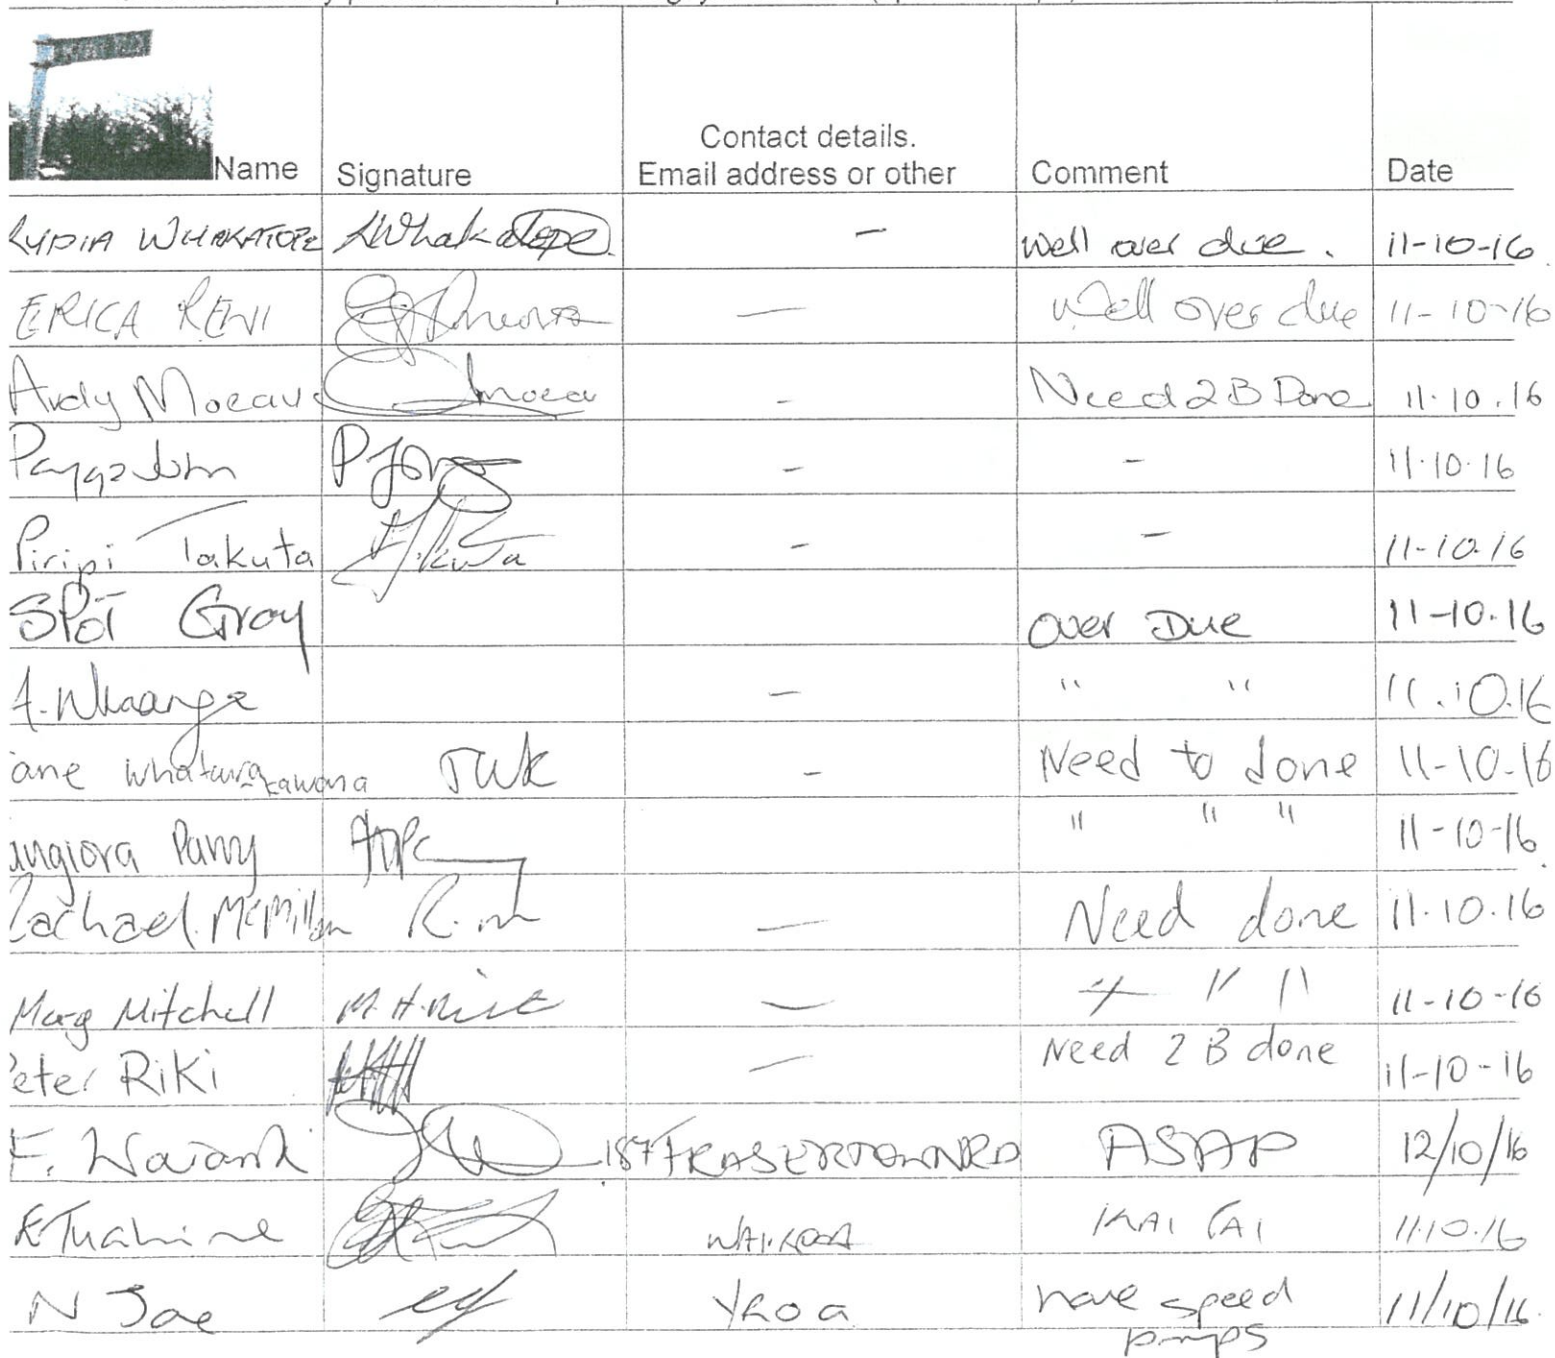 Name Signature Contact details. Email address or other Comment Date
LYDIA WHAKATOPE LWhakatope - Well over due. 11-10-16
ERICA REWI — Well over due 11-10-16
Andy Moeau Amoeau - Need 2 B Done 11.10.16
P Jones - - 11.10.16
Piripi Takuta Takuta - - 11-10.16
SPOT Gray over Due 11-10.16
A. Whaanga - " " 11.10.16
ane whatuira-kawana JWK - Need to done 11-10-16
angiora Parry " " " 11-10-16
Rachael McMillan R. — Need done 11.10.16
Marg Mitchell M.H. — " " 11-10-16
eter RiKi — Need 2 B done 11-10-16
F. 187 FRASERTOWN RD ASAP 12/10/16
E Tuahine WAIROA KAI PAI 11.10.16
N Joe YROA have speed 11/10/16